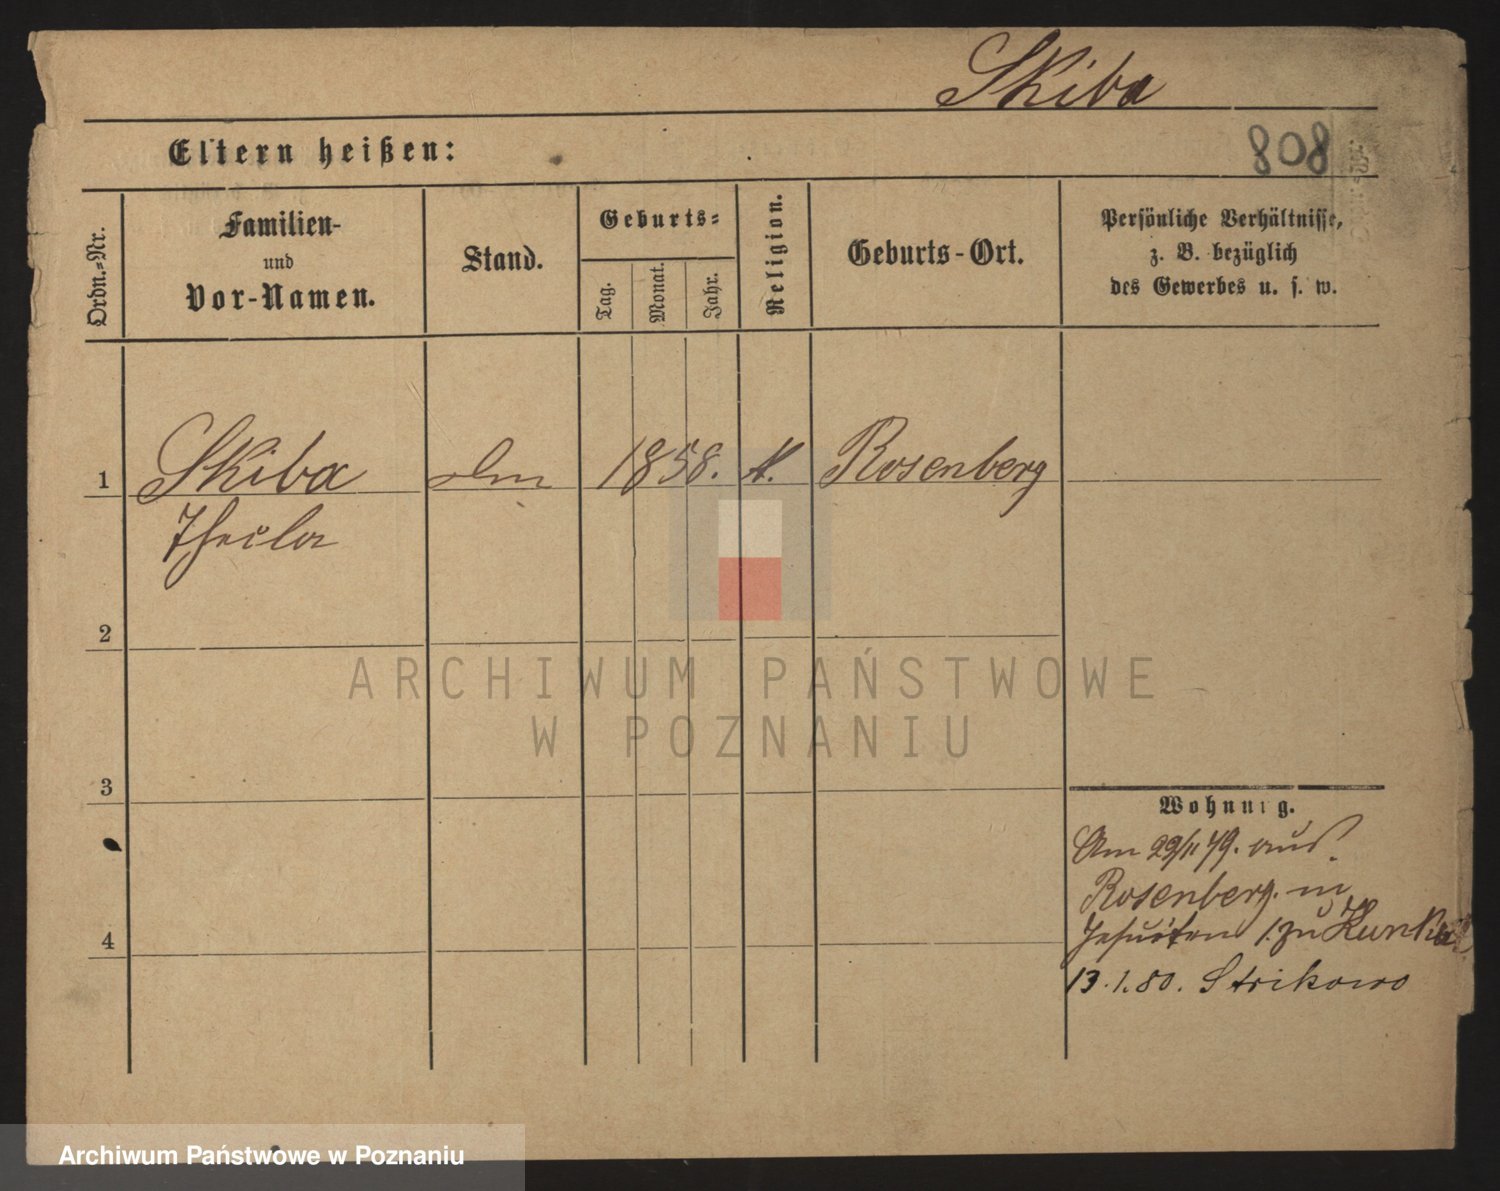 Skiba
808
Eltern heißen:
Ordn.-Nr.
Familien-
und
Vor-Namen.
Stand.
Geburts-
Tag.
Monat.
Jahr.
Religion.
Geburts-Ort.
Persönliche Verhältnisse,
z. B. bezüglich
des Gewerbes u. s. w.
1
Skiba
1858.
k.
Rosenberg
2
ARCHIWUM PAŃSTWOWE
W POZNANIU
3
Wohnung.
Am 29/11 79. aus
Rosenberg. in
Jesuiten 1. zu
4
13.1.80. Strikowo
Archiwum Państwowe w Poznaniu